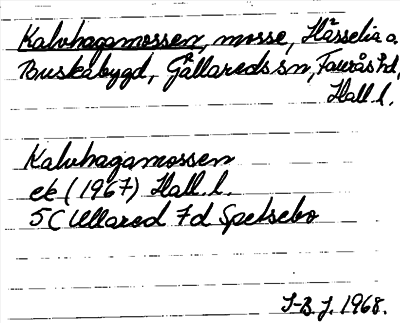 Kalvhagamossen, mosse, Hässelia o.
Buskabygd, Gällareds sn, Faurås hd,
Hall. l.
Kalvhagamossen
ek (1967) Hall. l.
5C Ullared 7d Spetsebo
I-B. J. 1968.